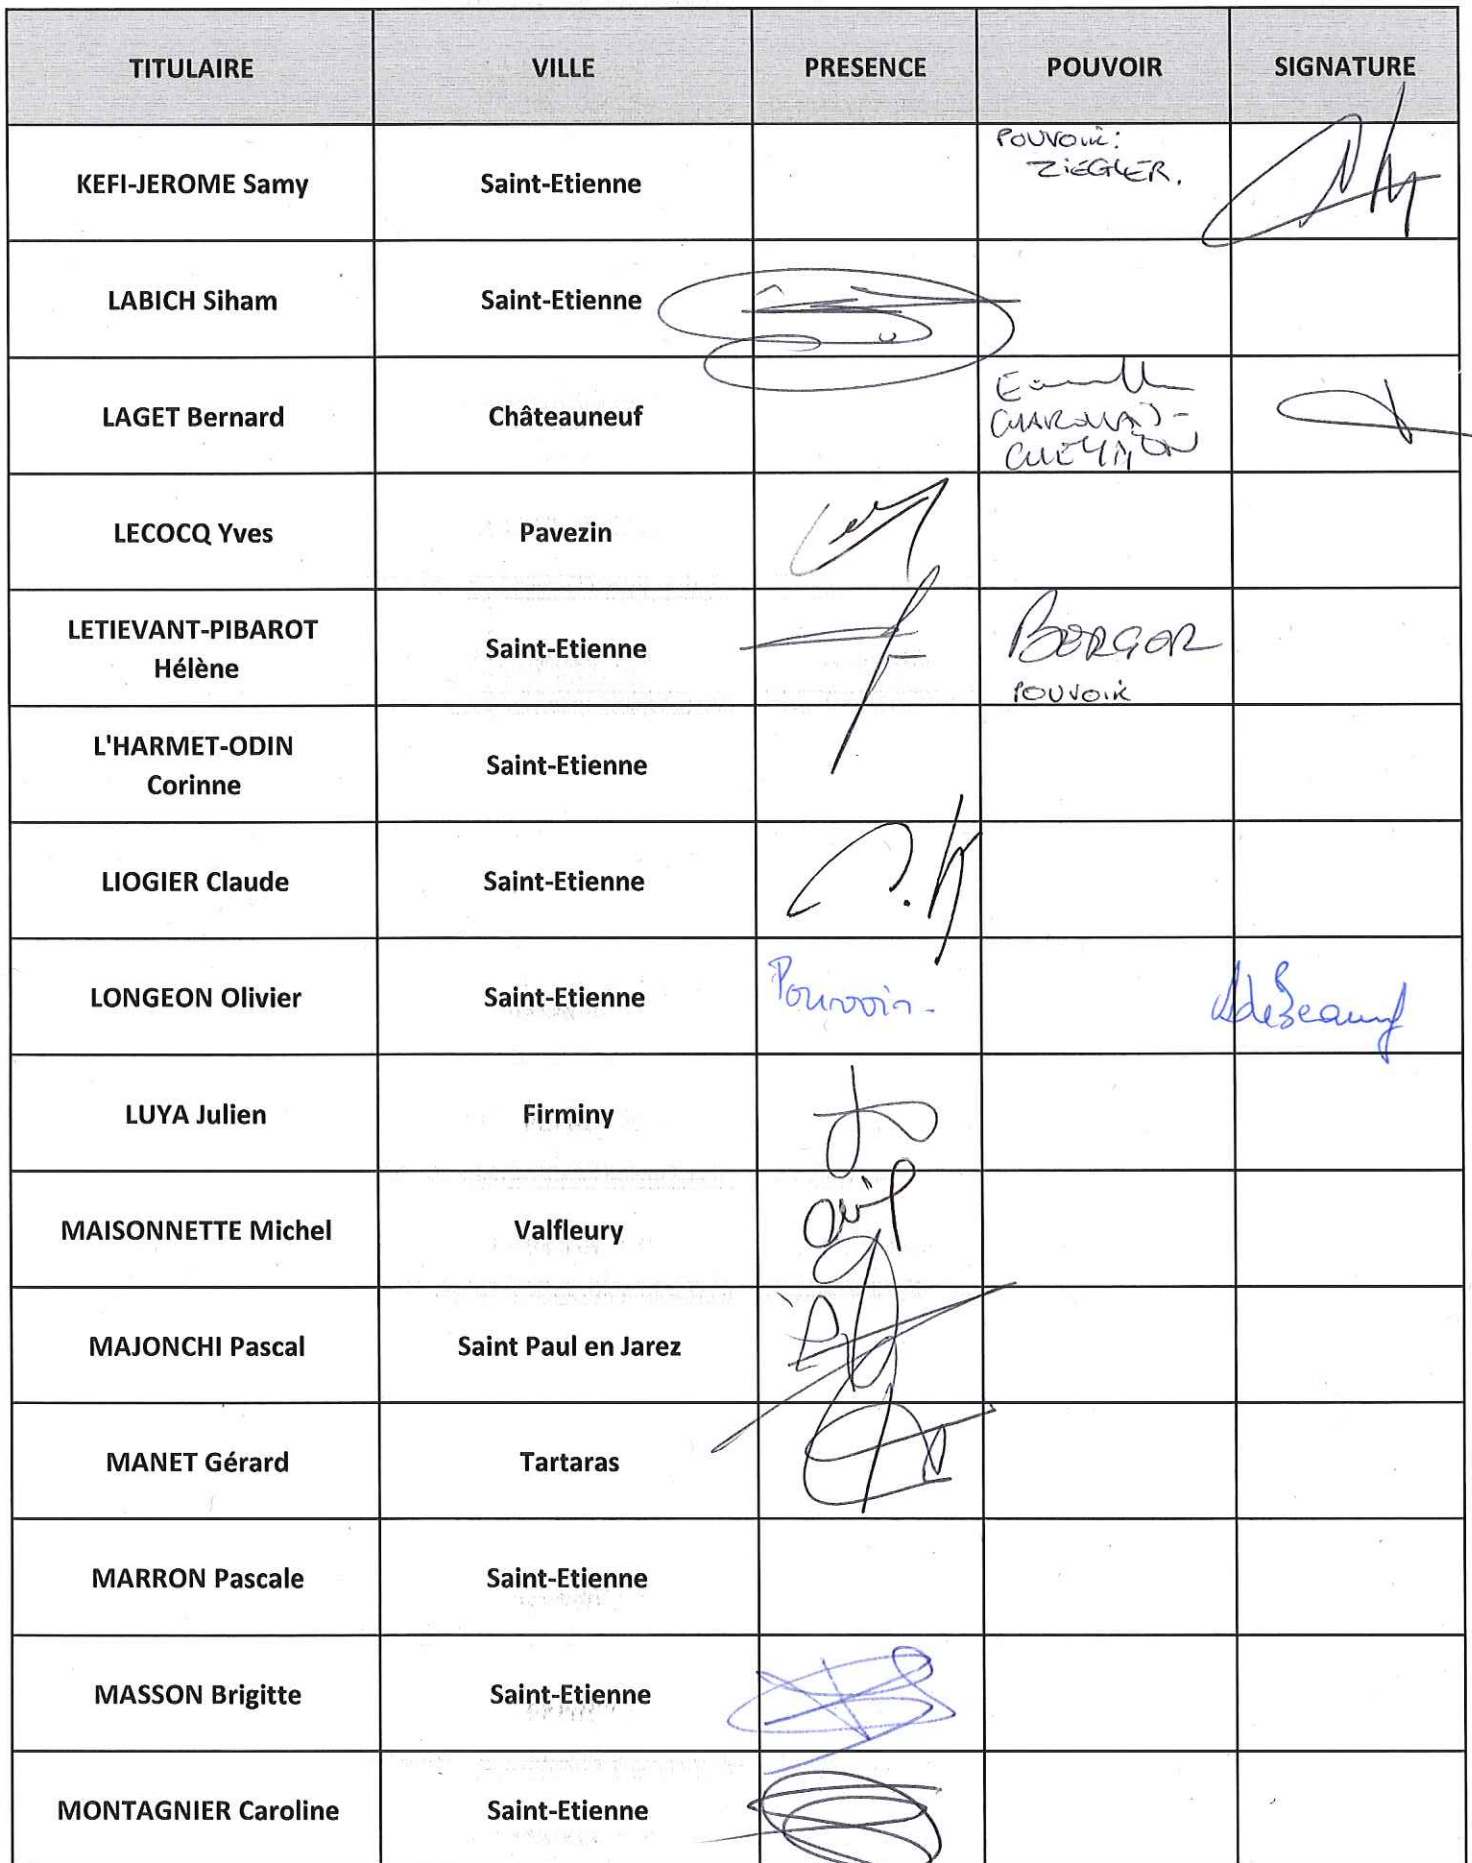 TITULAIRE VILLE PRESENCE POUVOIR SIGNATURE
KEFI-JEROME Samy Saint-Etienne POUVOIR: ZIEGLER.
LABICH Siham Saint-Etienne
LAGET Bernard Châteauneuf
LECOCQ Yves Pavezin
LETIEVANT-PIBAROT Hélène Saint-Etienne BERGER POUVOIR
L'HARMET-ODIN Corinne Saint-Etienne
LIOGIER Claude Saint-Etienne
LONGEON Olivier Saint-Etienne Pouvoir-
LUYA Julien Firminy
MAISONNETTE Michel Valfleury
MAJONCHI Pascal Saint Paul en Jarez
MANET Gérard Tartaras
MARRON Pascale Saint-Etienne
MASSON Brigitte Saint-Etienne
MONTAGNIER Caroline Saint-Etienne